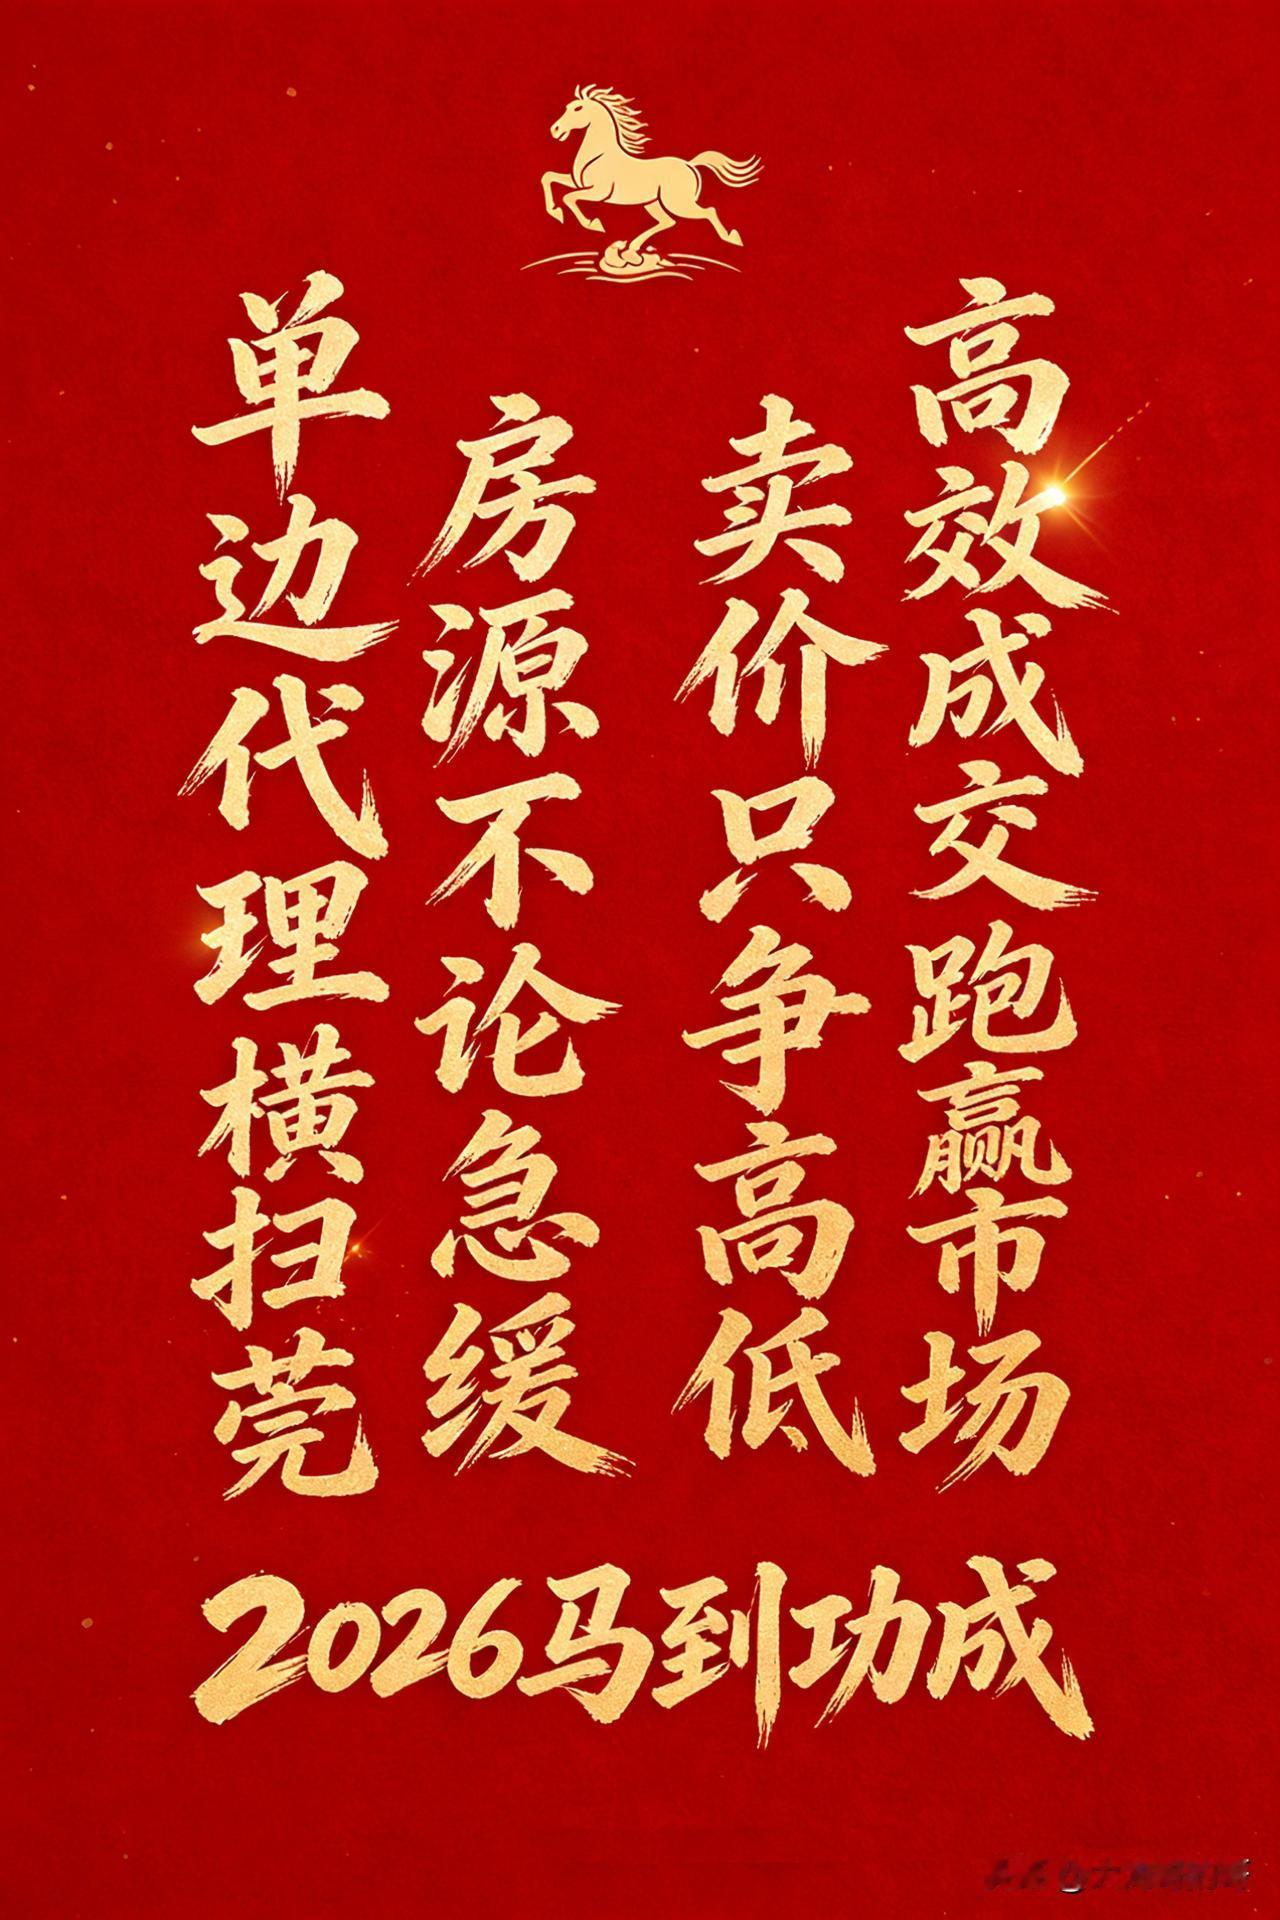 单边代理横扫莞
房源不论急缓
卖价只争高低
高效成交跑赢市场
2026马到功成